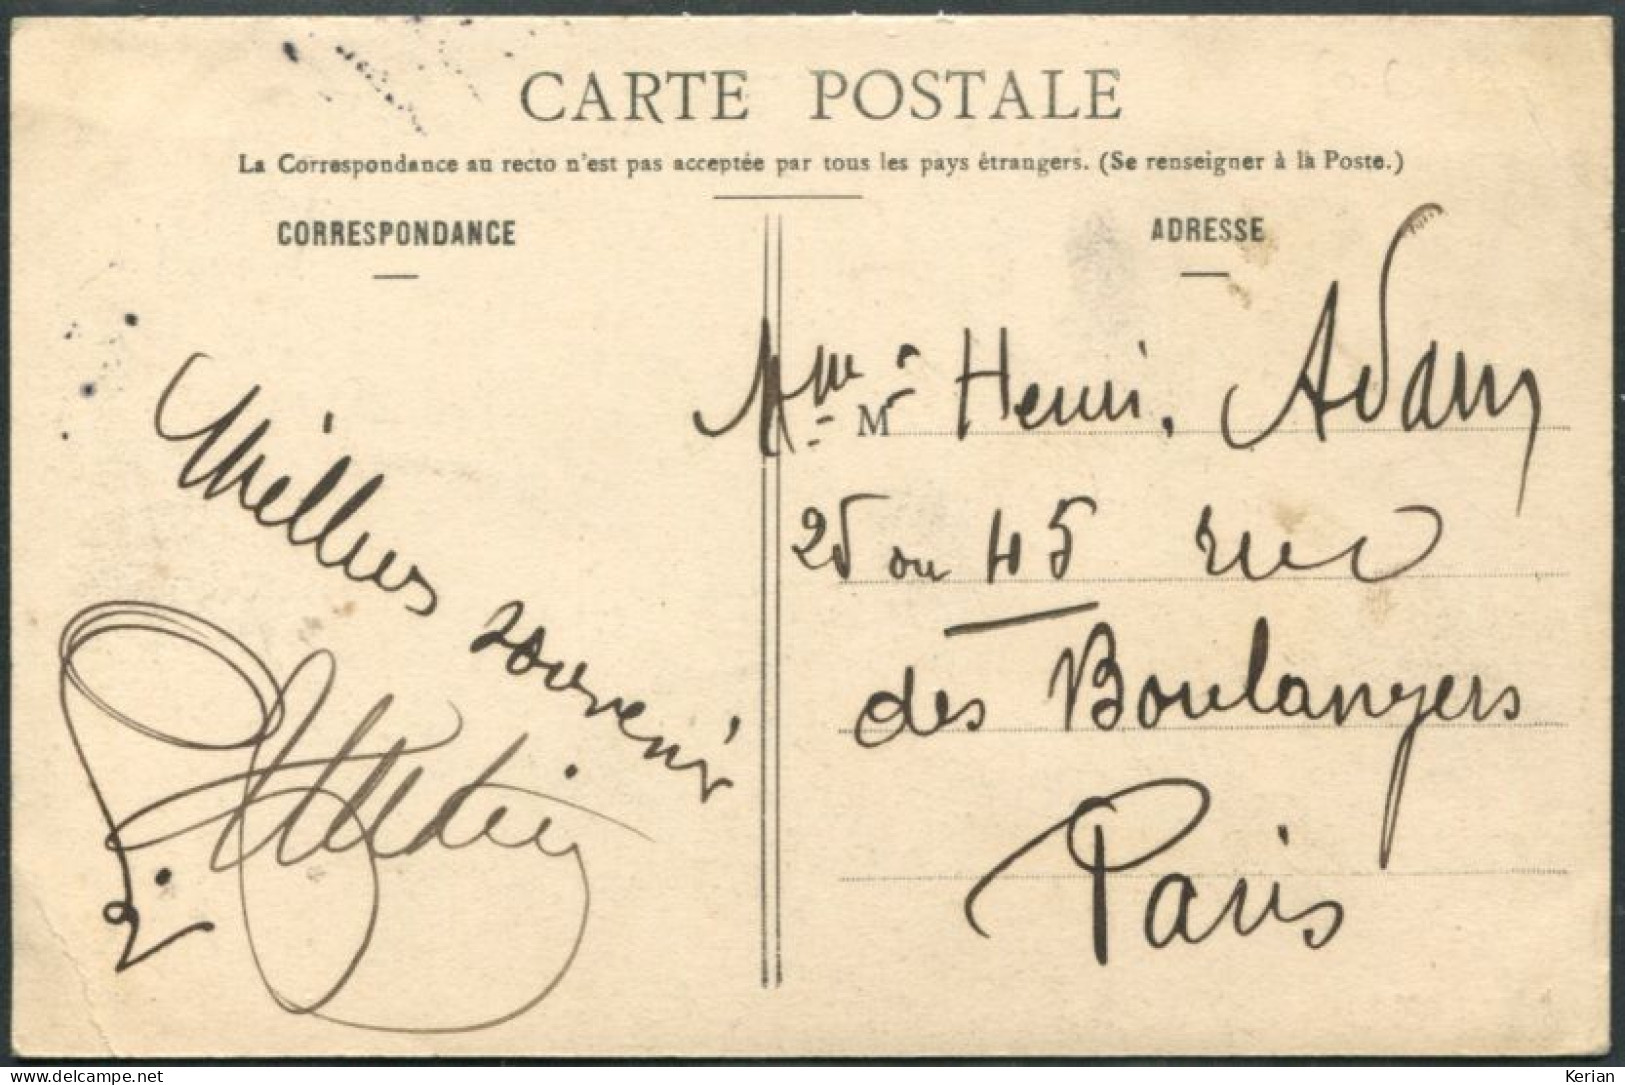 CARTE POSTALE
La Correspondance au recto n'est pas acceptée par tous les pays étrangers. (Se renseigner à la Poste.)
CORRESPONDANCE
Milles souvenir
ADRESSE
Mme M Henri Adam
25 ou 45 rue
des Boulangers
Paris
Kerian